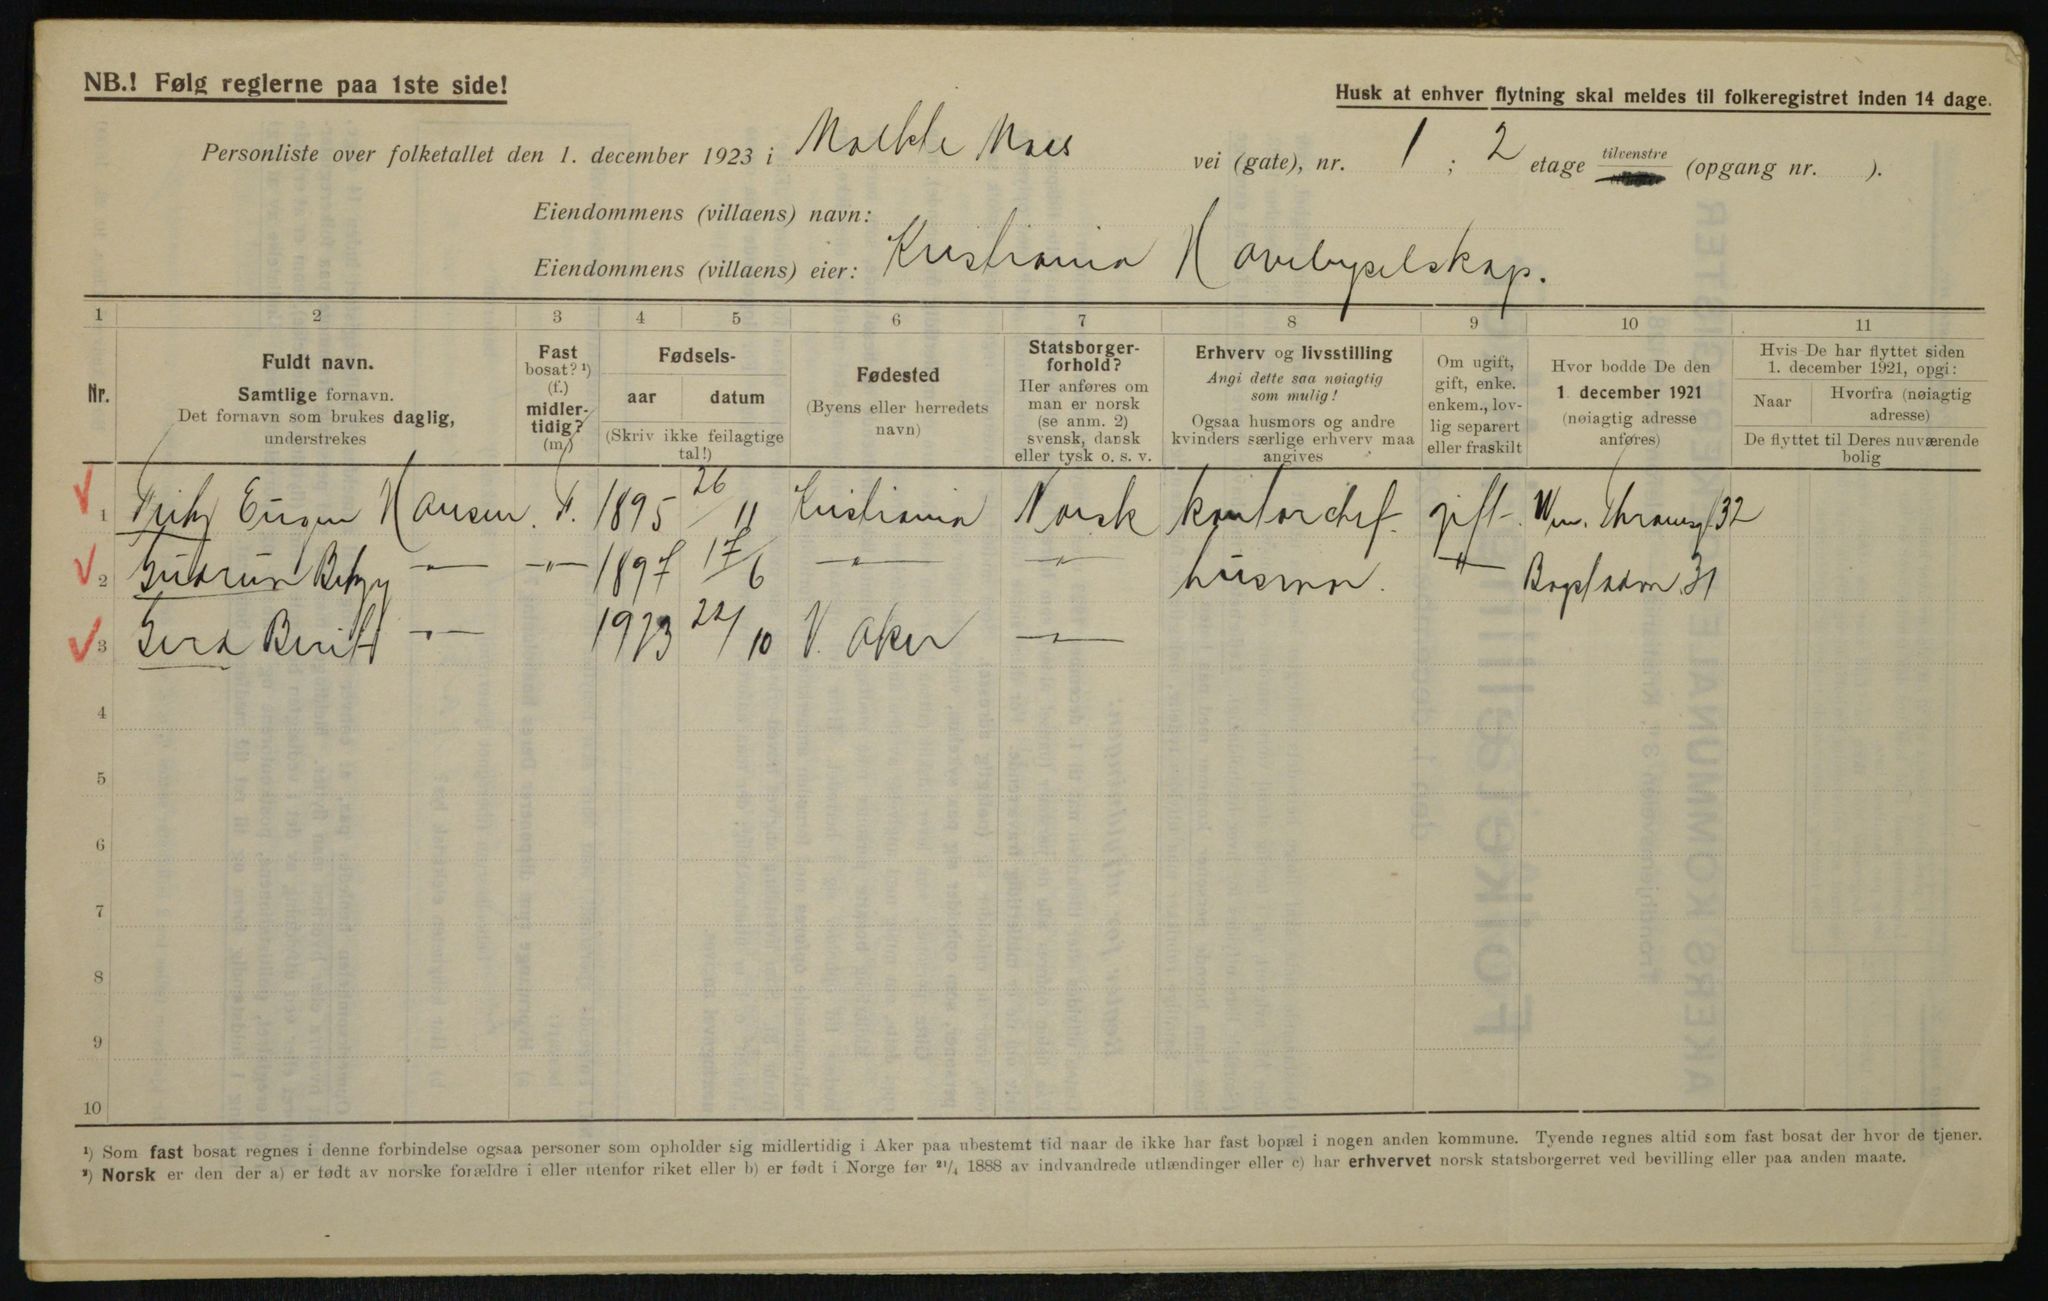 NB.! Følg reglerne paa 1ste side!
Husk at enhver flytning skal meldes til folkeregistret inden 14 dage.
Personliste over folketallet den 1. december 1923 i Moltke Moes vei (gate), nr. 1 ; 2 etage tilvenstre (opgang nr. ).
Eiendommens (villaens) navn:
Eiendommens (villaens) eier: Kristiania Havebyselskap.
1 2 3 4 5 6 7 8 9 10 11
Nr.
Fuldt navn.
Samtlige fornavn.
Det fornavn som brukes daglig,
understrekes
Fast
bosat? ¹)
(f.)
midler-
tidig?
(m.)
Fødsels-
aar datum
(Skriv ikke feilagtige
tal!)
Fødested
(Byens eller herredets
navn)
Statsborger-
forhold?
Her anføres om
man er norsk
(se anm. 2)
svensk, dansk
eller tysk o. s. v.
Erhverv og livsstilling
Angi dette saa nøiagtig
som mulig!
Ogsaa husmors og andre
kvinders særlige erhverv maa
angives
Om ugift,
gift, enke.
enkem., lov-
lig separert
eller fraskilt
Hvor bodde De den
1. december 1921
(nøiagtig adresse
anføres)
Hvis De har flyttet siden
1. december 1921, opgi:
Naar Hvorfra (nøiagtig
adresse)
De flyttet til Deres nuværende
bolig
1 Fritz Eugen Hansen. F. 1895 26/11 Kristiania Norsk kontorchef. gift. Wm. Thranesgt 32
2 Gudrun Betzy —"— —"— 1897 17/6 —"— —"— husmor. —"— Bogstadvn. 31
3 Gerd Berit —"— 1923 22/10 V. Aker —"—
4
5
6
7
8
9
10
¹) Som fast bosat regnes i denne forbindelse ogsaa personer som opholder sig midlertidig i Aker paa ubestemt tid naar de ikke har fast bopæl i nogen anden kommune. Tyende regnes altid som fast bosat der hvor de tjener.
²) Norsk er den der a) er født av norske forældre i eller utenfor riket eller b) er født i Norge før ²¹/₄ 1888 av indvandrede utlændinger eller c) har erhvervet norsk statsborgerret ved bevilling eller paa anden maate.